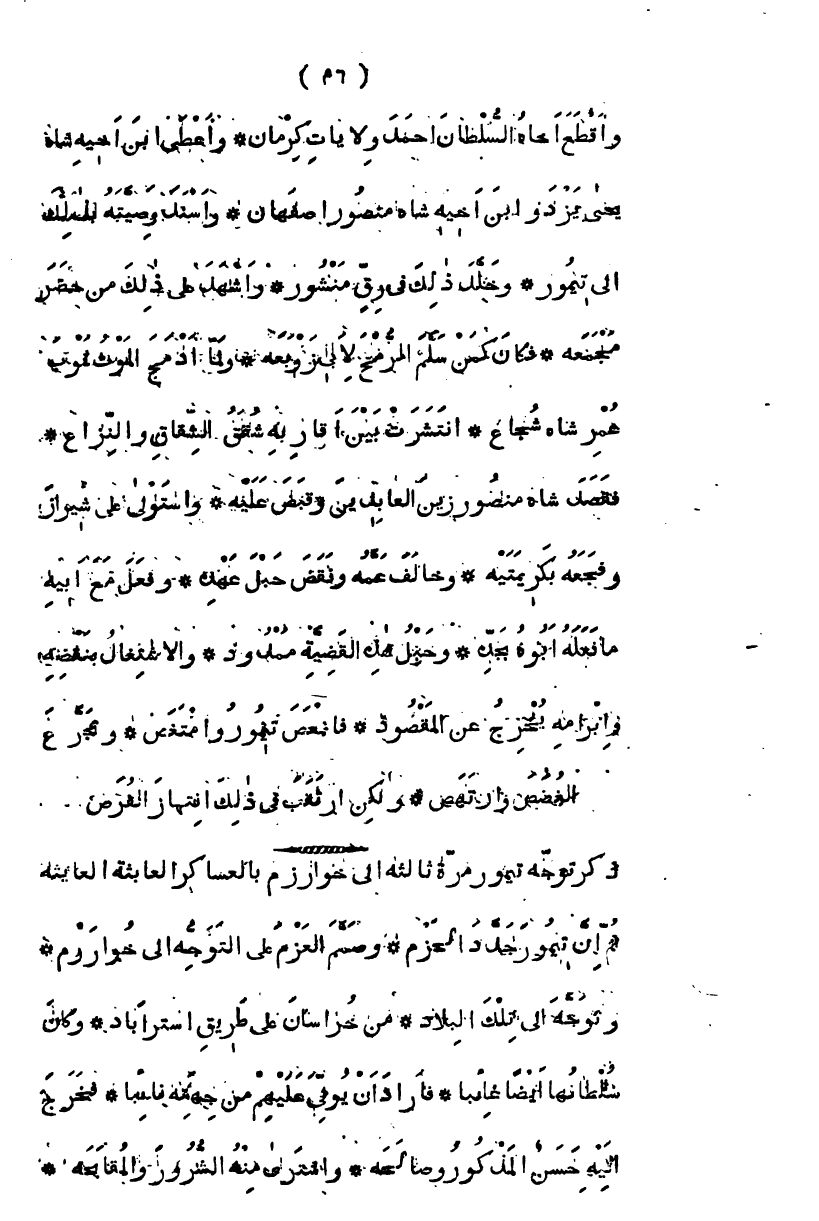 ( ٣٦ )
وأَقْطَعَ أَخاهُ السُّلْطانَ احمَدَ ولاياتِ كِرْمان * وأَعْطَى ابنَ أَخِيهِ شاه
يحيى يَزْدَ وابنَ أَخِيهِ شاه منصُور اصفَهان * وأَسْنَدَ وصيتَه
الى تِيمُور * وخَلَّدَ ذلِكَ فى رِقٍّ مَنْشُور * وأَشْهَدَ على ذلِكَ من حَضَرَ
مَجْمَعَه * فكانَ كمَنْ سَلَّمَ الرِّيحَ * ولمَّا
عُمْرِ شاه شُجاع * انتَشَرَتْ بَيْنَ أَقارِبِهِ شُقَقُ الشِّقاقِ والنِّزاع *
فقَصَدَ شاه منصُور زينَ العابِدِينَ وقبَضَ عَلَيْه * واستَوْلىٰ على شِيرازَ
وفجَعَهُ بكَرِيمَتَيْه * وخالَفَ عمَّه ونَقَضَ حَبْلَ عَهْدِه * وفعَلَ مَعَ أَبِيهِ
ما فَعَلَهُ ابُوهُ بجَدِّه * وحَبْلُ هٰذِهِ القَضِيَّةِ ممْدُود * والاشْتِغالُ بنَقْضِهِ
وإِبْرامِهِ يُخْرِجُ عن المَقْصُود * فامتَعَضَ تِيمُورُ وامتَغَص * وتَجَرَّعَ
الغُصَصَ وارتَهَص * ولٰكِن ارتَقَبَ فى ذٰلِكَ انتِهازَ الفُرَص
ذكر توجّه تيمور مرّة ثالثه الى خوارزم بالعساكر العابثة العايثه
ثُمَّ إِنَّ تِيمُورَ جَدَّدَ الحَزْم * وصَمَّمَ العَزْمَ على التَّوَجُّه الى خُوارَزْم *
وتَوجَّهَ الى تِلْكَ البِلاد * مِن خُراسانَ على طَرِيقِ استراباد * وكانَ
سُلْطانُها أَيْضًا غائِبا * فأَرادَ أَنْ يُوَلِّيَ عَلَيْهِمْ من جِهَتِه نائِبا * فخَرَجَ
إِلَيْهِ حَسَنُ المَذْكُورُ وصالَحَه * واشتَرىٰ مِنْهُ الشُّرُورَ والمُقابَحَه *